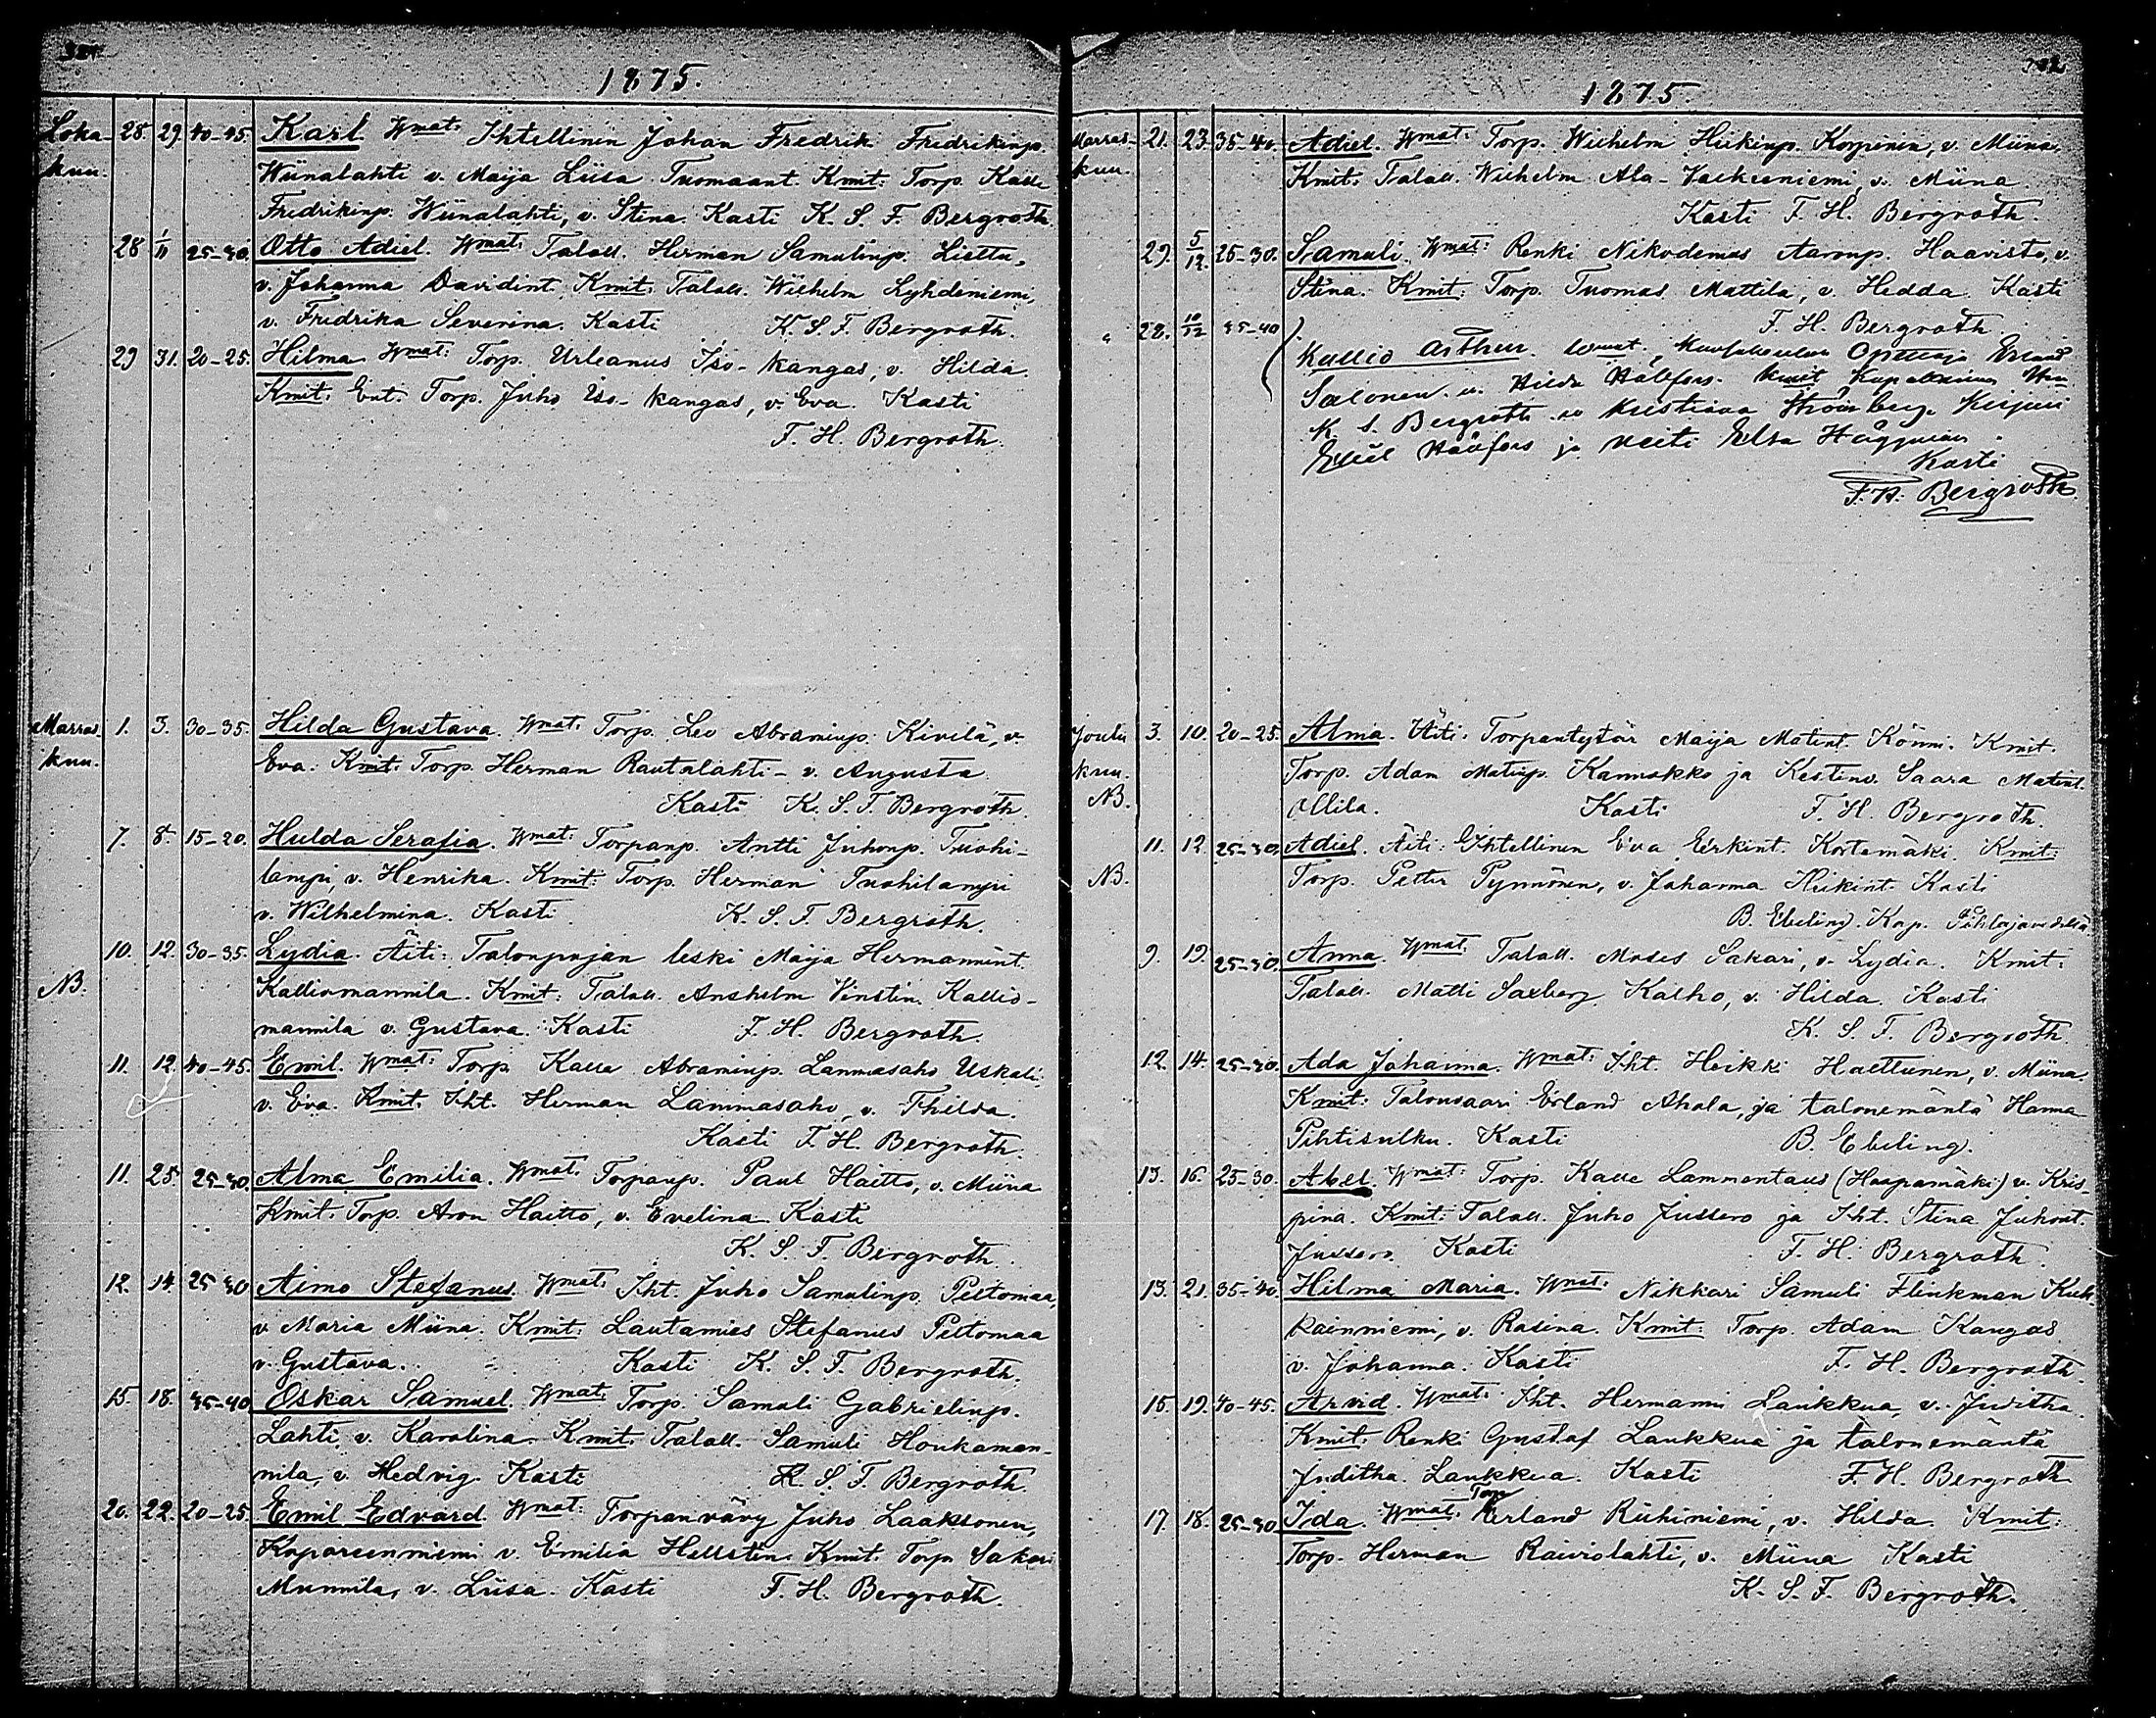 1875.
Loka- 28. 29. 40-45. Karl Wmat: Ihtellinen Johan Fredrik Fredrikinp.
kuu. Wiinalahti v. Maija Liisa Tuomaant. Kmit: Torp. Kalle
Fredrikinp. Wiinalahti, v. Stina. Kasti K. S. F. Bergroth.
28 1/11 25-30. Otto Adiel. Wmat: Talall. Herman Samulinp. Liettu,
v. Johanna Davidint. Kmit: Talall. Wilhelm Lyhdeniemi,
v. Fredrika Severina. Kasti K. S. F. Bergroth.
29 31. 20-25. Hilma Wmat: Torp. Urleanus Iso-kangas, v. Hilda.
Kmit: Ent. Torp. Juho Iso-kangas, v. Eva. Kasti
F. H. Bergroth.
Marras- 1. 3. 30-35. Hilda Gustava. Wmat: Torp. Leo Abraminp. Kivelä, v.
kuu. Eva. Kmit: Torp. Herman Rautalahti - v. Augusta
Kasti K. S. F. Bergroth.
7. 8. 15-20. Hulda Serafia. Wmat: Torpanp. Antti Juhonp. Tuohi-
lampi, v. Henrika. Kmit: Torp. Herman Tuohilampi
v. Wilhelmina. Kasti K. S. F. Bergroth.
10. 12. 30-35. Lydia. Äiti: Talonpojan leski Maija Hermannint.
NB. Kalliomannila. Kmit: Talall. Anshelm Vinstin Kallio-
mannila v. Gustava. Kasti F. H. Bergroth.
11. 12. 40-45. Emil. Wmat: Torp. Kalle Abraminp. Lammasaho Uskali,
v. Eva. Kmit. Iht. Herman Lammasaho, v. Thilda.
Kasti F. H. Bergroth.
11. 25. 25-30. Alma Emilia. Wmat: Torpanp. Paul Haitto, v. Miina
Kmit: Torp. Aron Haitto, v. Evelina Kasti
K. S. F. Bergroth.
12. 14. 25 30 Aimo Stefanus. Wmat: Iht. Juho Samulinp. Peltomaa,
v. Maria Miina. Kmit: Lautamies Stefanus Peltomaa
v. Gustava. Kasti K. S. F. Bergroth.
15. 18. 35-40 Oskar Samuel. Wmat: Torp. Samuli Gabrielinp.
Lahti, v. Karolina. Kmit. Talall. Samuli Honkaman-
nila, v. Hedvig. Kasti K. S. F. Bergroth.
20. 22. 20-25. Emil Edvard. Wmat: Torpanvävy Juho Laaksonen,
Kapareenniemi v. Emilia Hellstin. Kmit. Torp. Sakari
Munnila, v. Liisa. Kasti F. H. Bergroth.
1875.
Marras- 21. 23. 35-40. Adiel. Wmat: Torp. Wilhelm Heikinp. Korpinen, v. Miina.
kuu. Kmit: Talall. Wilhelm Ala-Valkeeniemi, v. Miina.
Kasti F. H. Bergroth.
29. 5/12. 25-30. Samuli. Wmat: Renki Nikodemus Aaronp. Haavisto, v.
Stina. Kmit: Torp. Tuomas Mattila, v. Hedda. Kasti
F. H. Bergroth
28. 10/12 35-40 Kallio Arthur. Wmat. Opettaja
Salonen v. Hilda Hällfors. Kmit Kapalainen
K. S. Bergroth v. Kristiina Strömberg.
Hällfors ja neiti Elsa Häggman
Kasti
F. H. Bergroth.
Joulu 3. 10. 20-25. Alma. Äiti. Torpantytär Maija Matint. Könni. Kmit.
kuu. Torp. Adam Matinp. Kannakko ja Kestinv. Saara Matint.
NB. Ollila. Kasti F. H. Bergroth.
11. 12. 25-30. Adiel. Äiti: Ihtellinen Eva Eerkint. Kortemäki. Kmit:
NB. Torp. Petter Pynnönen, v. Johanna Heikint. Kasti
B. Ebeling. Kap. Pihlajavedellä
9. 19. 25-30. Anna. Wmat. Talall. Moses Sakari, v. Lydia. Kmit:
Talall. Matti Saxberg Kalho, v. Hilda. Kasti
K. S. F. Bergroth
12. 14. 25-30. Ada Johanna. Wmat: Iht. Heikki Halttunen, v. Miina.
Kmit: Talonsaari Erland Ahola, ja talonemäntä Hanna
Pihtisulku. Kasti B. Ebeling.
13. 16. 25-30. Abel. Wmat: Torp. Kalle Lammentaus (Haapamäki) v. Kris-
pina. Kmit: Talall. Juho Jussero ja Iht. Stina Juhont.
Jussero. Kasti F. H. Bergroth.
13. 21. 35-40. Hilma Maria. Wmat: Nikkari Samuli Flinkman Kuk-
kainniemi, v. Rosina. Kmit: Torp. Adam Kangas
v. Johanna. Kasti F. H. Bergroth.
15. 19. 40-45. Arvid. Wmat: Iht. Hermanni Laukkua, v. Juditha.
Kmit: Renki Gustaf Laukkua ja talonemäntä
Juditha Laukkua. Kasti F. H. Bergroth
17. 18. 25-30 Ida. Wmat. Torp Erland Riihiniemi, v. Hilda. Kmit:
Torp. Herman Raiviolahti, v. Miina Kasti
K. S. F. Bergroth.